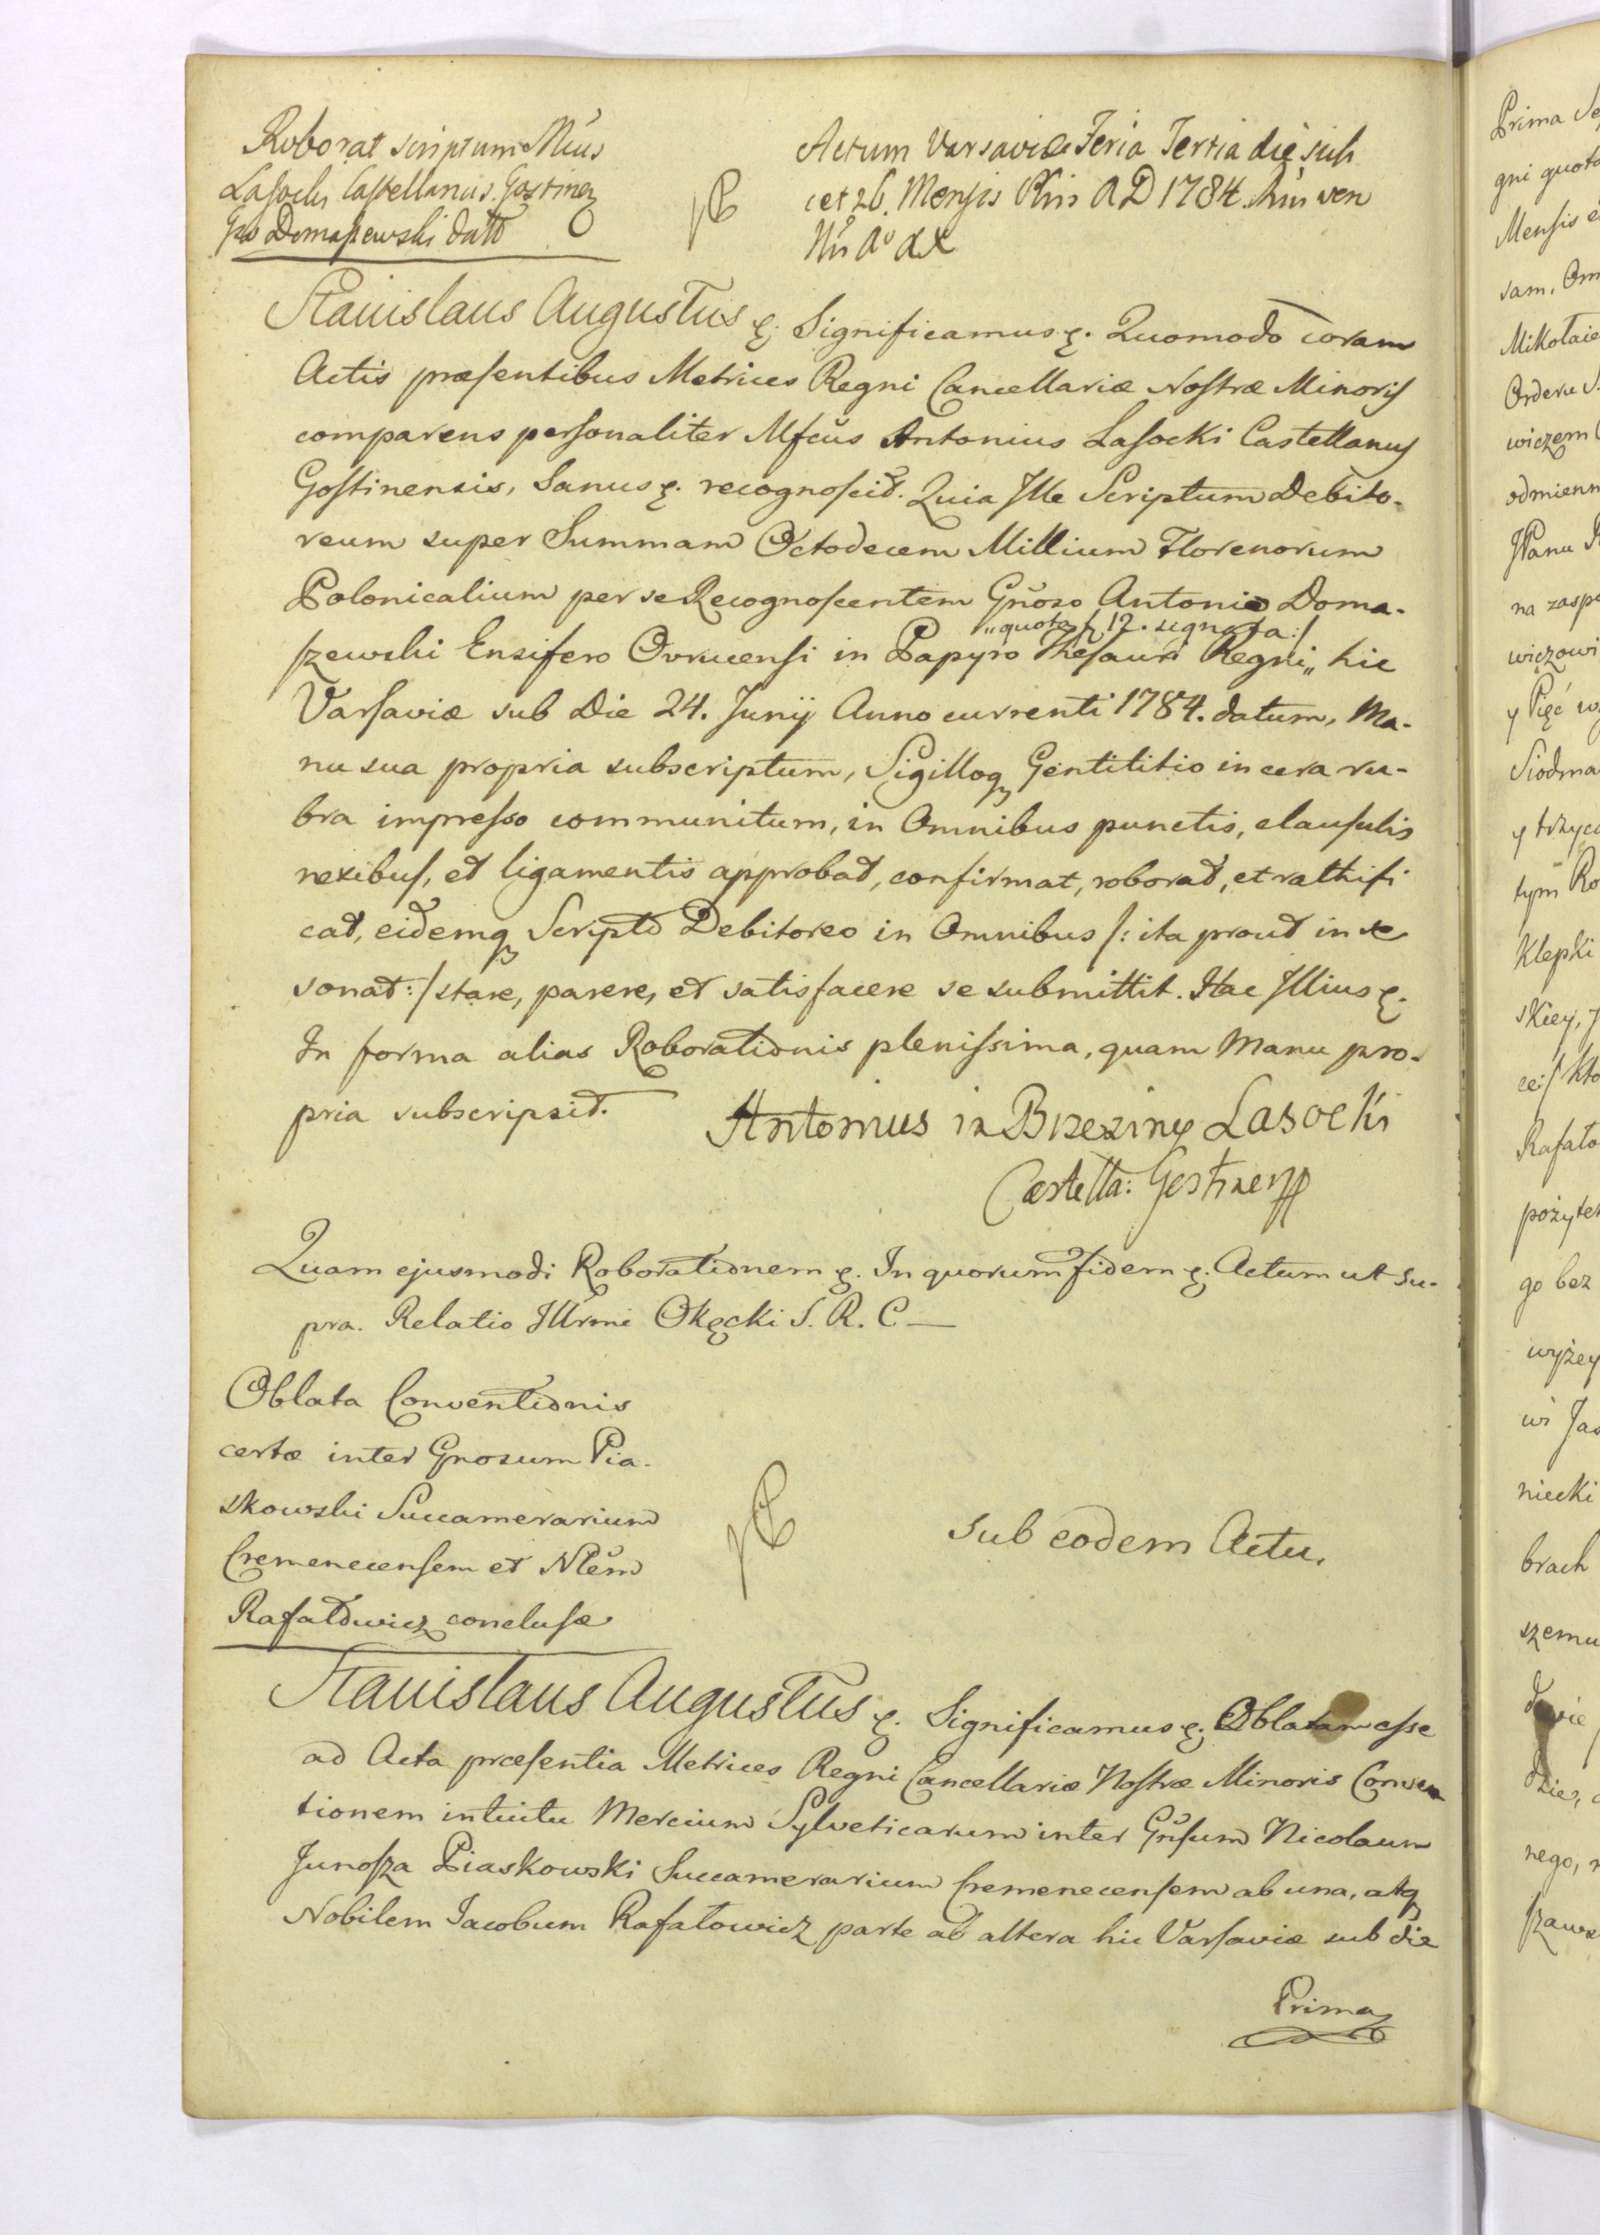 Roborat scriptum Mcus
Lasocki Castellanus Gostinen
Gso Domaszewski datt
Actum Varsaviæ Feria Tertia die
26. Mensis AD 1784.
Stanislaus Augustus &. Significamus &. Quomodo coram
Actis præsentibus Metrices Regni Cancellariæ Nostræ Minoris
comparens personaliter Mfcus Antonius Lasocki Castellanus
Gostinensis, Sanus &. recognoscit. Quia Ille Scriptum Debito-
reum super Summam Octodecem Millium Florenorum
Polonicalium per se Recognoscentem Gnoso Antonio Doma-
„quota 12. signata:/
szewski Ensifero Ovrucensi in Papyro Thesauri Regni„ hic
Varsaviæ sub Die 24. Junij Anno currenti 1784. datum, Ma-
nu sua propria subscriptum, Sigilloq Gentilitio in cera ru-
bra impresso communitum, in Omnibus punctis, clausulis
nexibus, et ligamentis approbat, confirmat, roborat, et rathifi
cat, eidemq Scripto Debitoreo in Omnibus /: ita prout in se
sonat :/ stare, parere, et satisfacere se submittit. Hac Illius &.
In forma alias Roborationis plenissima, quam Manu pro-
pria subscripsit.
Antonius in Brzeziny Lasocki
Castella: Gostinen
Quam ejusmodi Roborationem &. In quorum fidem &. Actum ut su-
pra. Relatio Illrmi Okęcki S. R. C —
Oblata Conventionis
certæ inter Gnosum Pia-
skowski Succamerarium
Cremenecensem et Nlem
Rafałowicz conclusæ
Sub eodem Actu.
Stanislaus Augustus &. Significamus &. Oblatam esse
ad Acta præsentia Metrices Regni Cancellariæ Nostræ Minoris Conven
tionem intuitu Mercium Sylveticarum inter Gnsum Nicolaum
Junosza Piaskowski Succamerarium Cremenecensem ab una, atq
Nobilem Jacobum Rafałowicz parte ab altera hic Varsaviæ sub die
Prima
Prima
gni quot
Mensis
sam, Om
Mikołaie
Orderu S.
wiczem
odmienn
JPanu
na zasp
więzowi
y Pięć
Siodma
y trzyd
tym Ro
Klepki
skiey,
ce:/ kto
Rafało
pożytek
go bez
wyżey
wi Jas
niecki
brach
szemu
dzie,
nego,
szaws